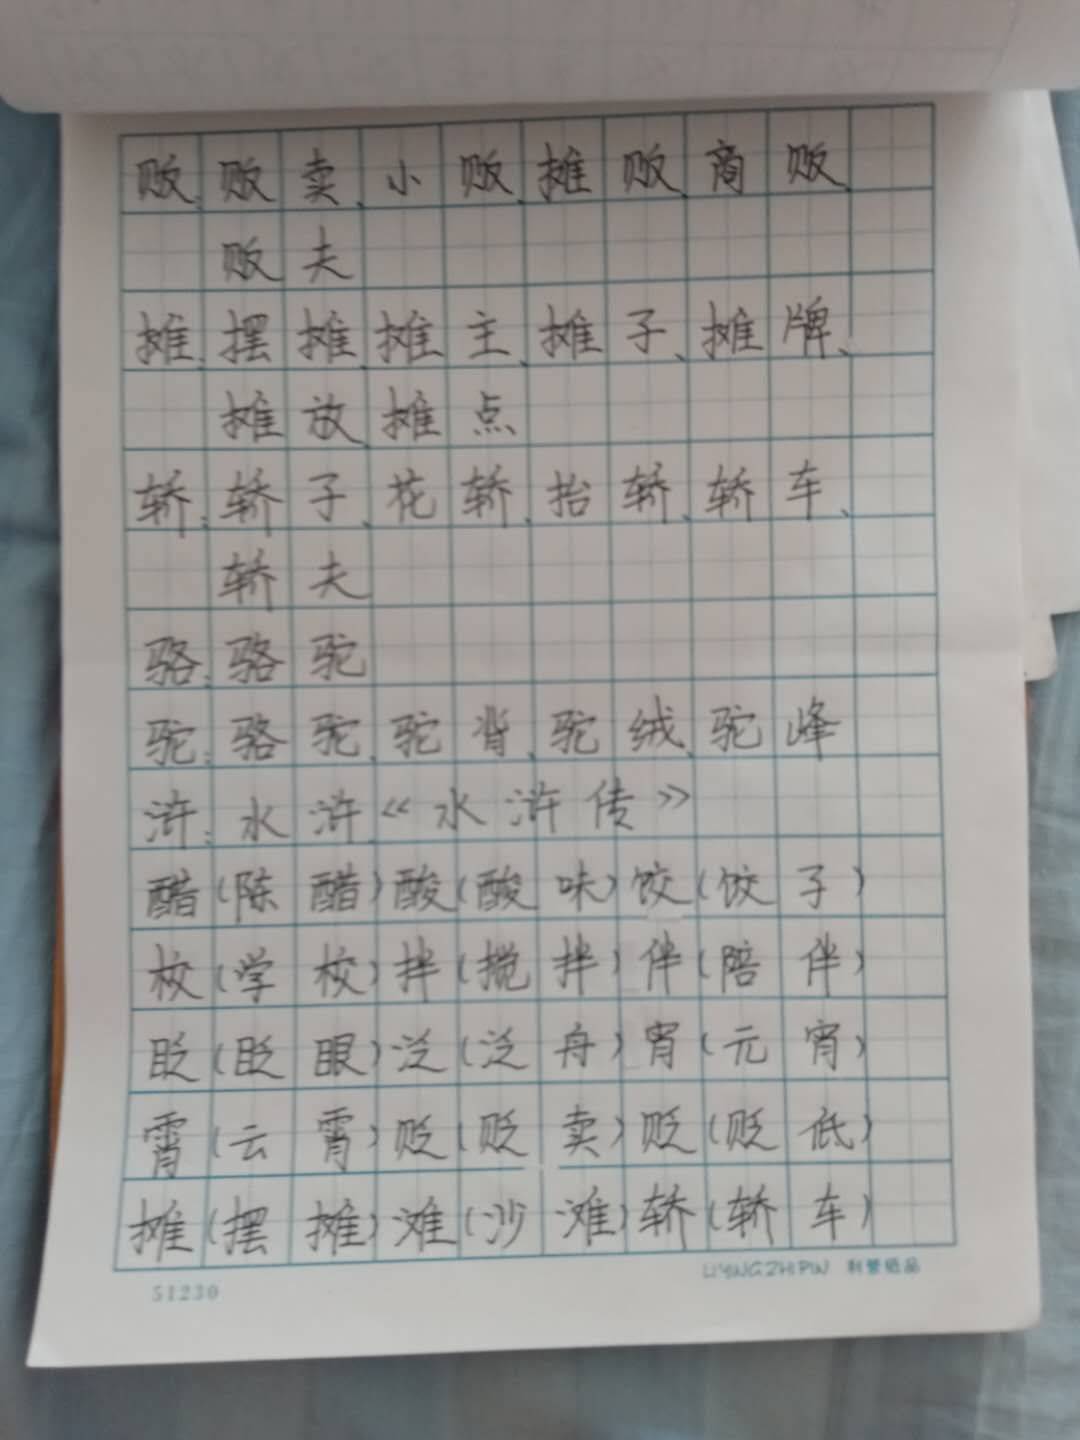 贩:贩卖、小贩、摊贩、商贩、
贩夫
摊:摆摊、摊主、摊子、摊牌、
摊放、摊点
轿:轿子、花轿、抬轿、轿车、
轿夫
骆:骆驼
驼:骆驼、驼背、驼绒、驼峰
浒:水浒、《水浒传》
醋(陈醋)酸(酸味)饺(饺子)
校(学校)拌(搅拌)伴(陪伴)
眨(眨眼)泛(泛舟)宵(元宵)
霄(云霄)贬(贬卖)贬(贬低)
摊(摆摊)滩(沙滩)轿(轿车)
51230
LIYINGZHIPIN 利营纸品